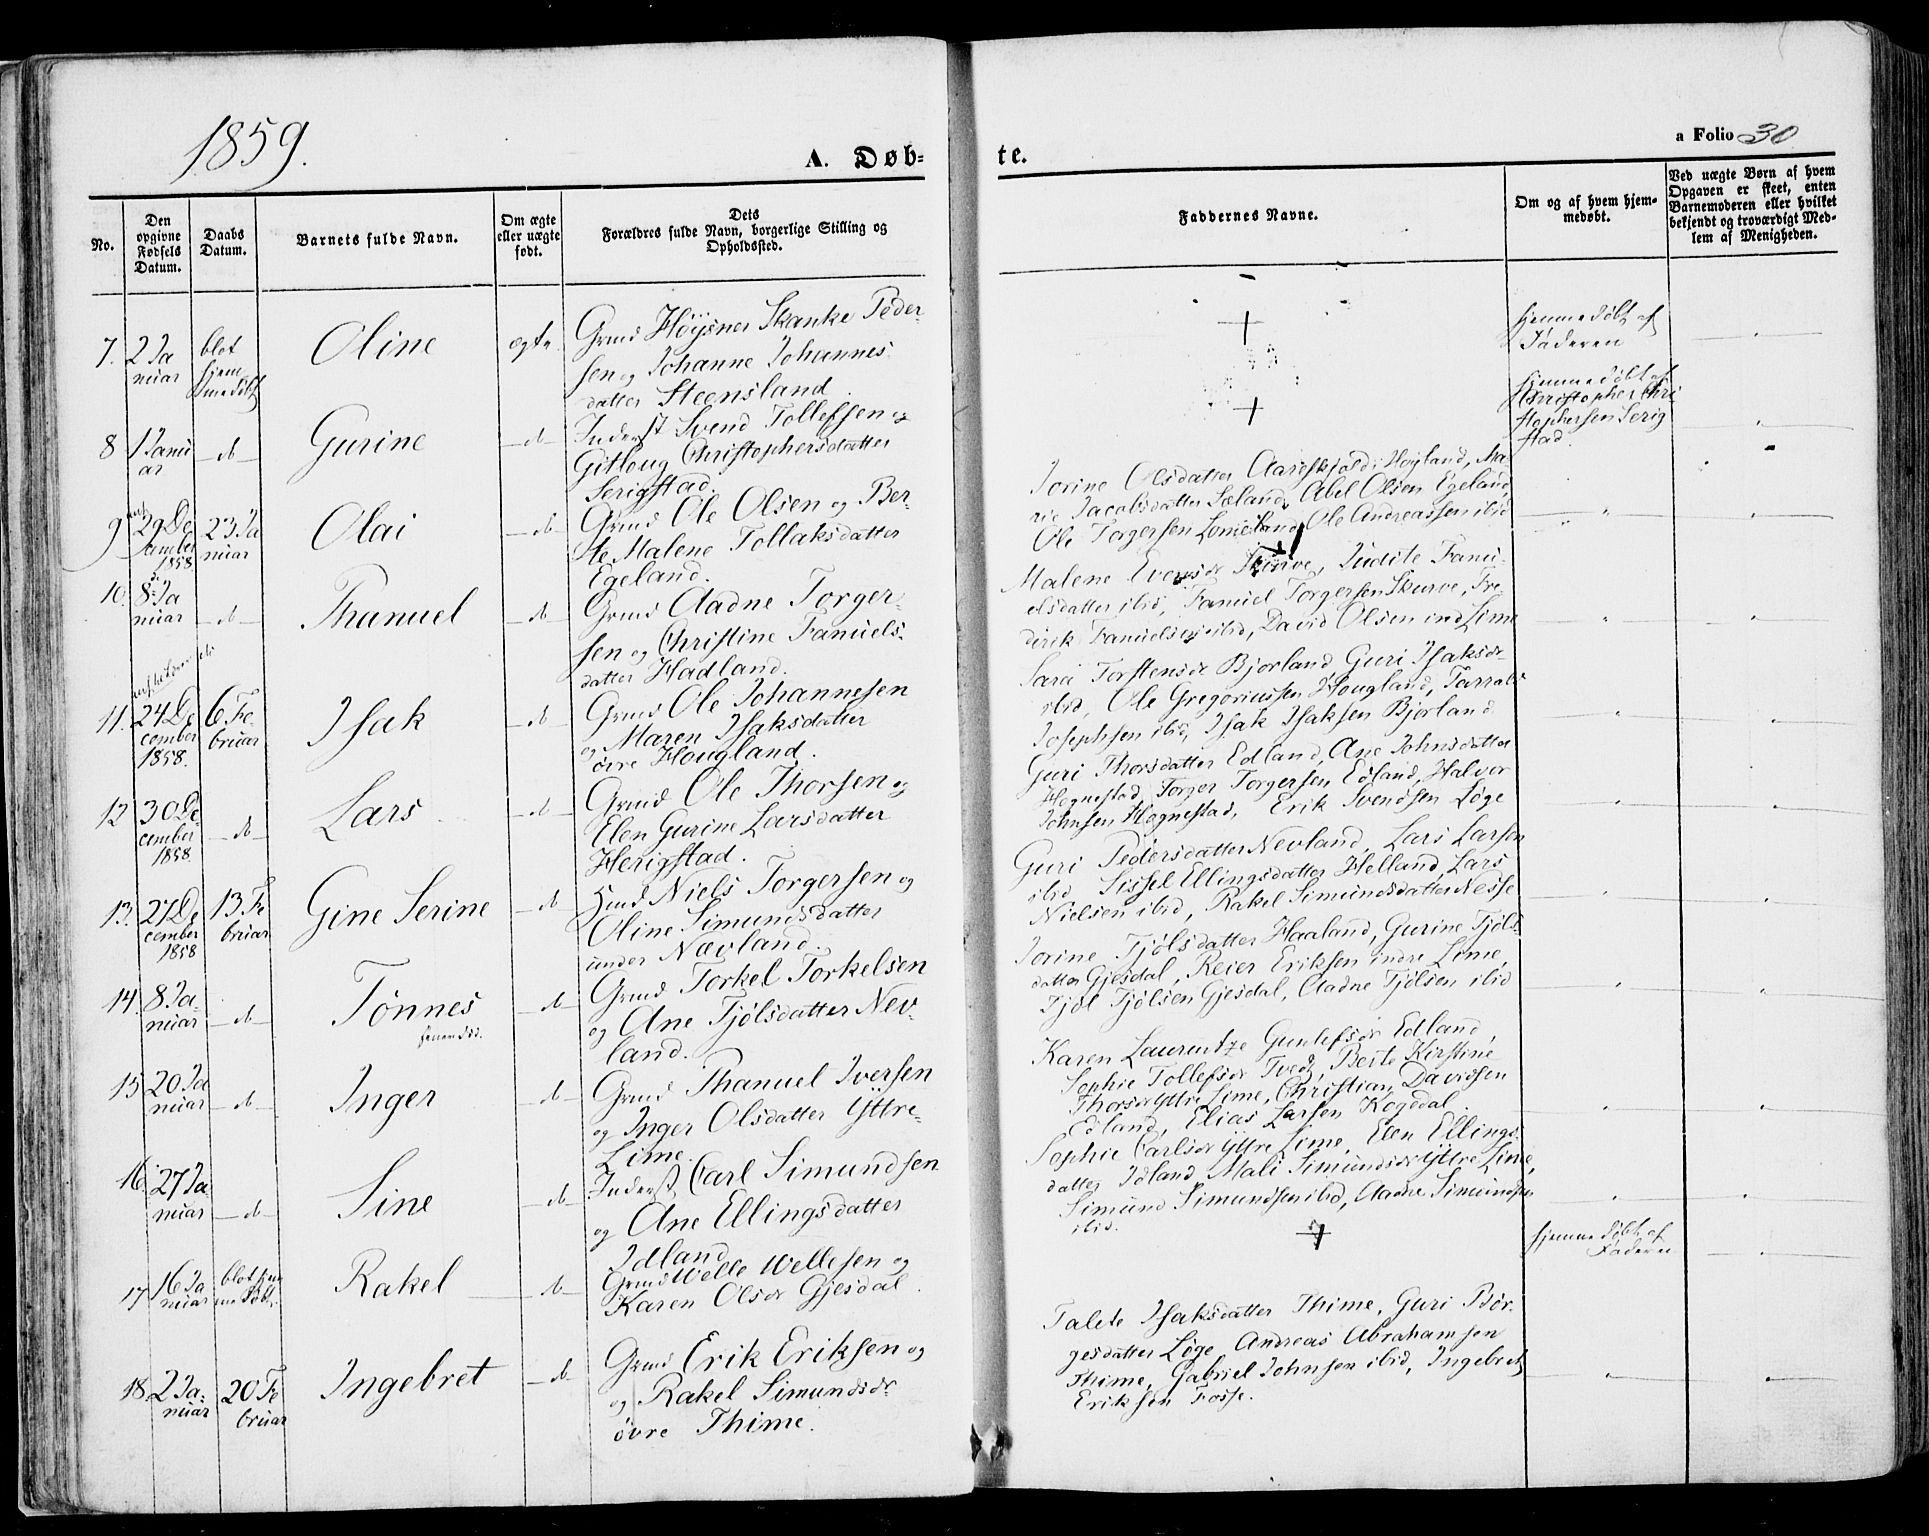 1859.
A. Døb-
te.
a Folio 30
No.
Den opgivne Fødsels Datum.
Daabs Datum.
Barnets fulde Navn.
Om ægte eller uægte født.
Dets Forældres fulde Navn, borgerlige Stilling og Opholdssted.
Faddernes Navne.
Om og af hvem hjemmedøbt.
Ved uægte Børn af hvem Opgaven er skeet, enten Barnemoderen eller hvilket bekjendt og troværdigt Medlem af Menigheden.
7. 2 Ja
nuar
blot
hjem
medøbt
Oline
ægte
Grmd Höysner Skanke Peder-
sen og Johanne Johannes
datter Steensland.
hjemmedøbt af
Faderen
8 1 Janu
ar
d
Gurine
d
Inderst Svend Tollefsen og
Gitloug Christophersdatter
Serigstad.
hjemmedøbt af
Christopher Chri
stophersen Serig
stad.
9 29 De
cember
1858
23 Ja
nuar
Olai
d
Grmd Ole Olsen og Ber-
te Malene Tollaksdatter
Egeland.
Jorine Olsdatter Høyland, Ma-
rie Jacobsdatter Sæland, Abel Olsen Egeland,
Ole Torgersen Lomeland, Ole Andreassen ibid
10. 8 Ja
nuar
d
Thanuel
d
Grmd Aadne Torger-
sen og Christine Fanuels-
datter Hadland.
Malene Skurve, Judite Fanu-
elsdatter ibid, Fanuel Torgersen Skurve, Fre
derik Fanuelsen ibid, David Olsen ind Lime
11. 24 De
cember
1858.
6 Fe-
bruar
Isak
d
Grmd Ole Johannesen
og Maren Isaksdatter
övre Hougland.
Sara Torstensdr Bjorland, Guri Isaksdr
ibid, Ole Gregoriussen Hougland, Tarrald
Josephsen ibid, Isak Isaksen Bjorland
12 30 De
cember
1858
d
Lars
d
Grmd Ole Thorsen og
Elen Gurine Larsdatter
Herigstad.
Guri Thorsdatter Edland, Ane Johnsdatter
Hognestad, Torger Torgersen Edland, Halvor
Johnsen Hognestad, Erik Svendsen Løge
13. 27 De
cember
1858
13 Fe
bruar
Gine Serine
d
Hmd Niels Torgersen og
Oline Simundsdatter
under Nævland.
Guri Pedersdatter Nevland, Lars Larsen
ibid Sissel Ellingsdatter Helland, Lars
Nielsen ibid, Rakel Simundsdatter Nesse
14. 8 Ja-
nuar
d
Tönnes
d
Grmd Torkel Torkelsen
og Ane Tjölsdatter Nev-
land.
Jorine Tjölsdatter Haaland, Gurine Tjöls-
datter Gjesdal, Reier Eriksen indre Lime,
Tjöl Tjölsen Gjesdal, Aadne Tjölsen ibid
15 20 Ja
nuar
d
Inger
d
Grmd Thanuel Iversen
og Inger Olsdatter Yttre-
Lime.
Karen Laurentze Gunlefsdr Edland,
Sophie Tollefsdr Tvedt, Berte Kirstine
Thorsdr Yttre Lime, Christian Davidsen
Edland, Elias Larsen Kogedal.
16. 27 Ja
nuar
d
Sine
d
Inderst Carl Simundsen
og Ane Ellingsdatter
Idland
Sophie Carlsdr Yttre Lime, Elen Ellings
datter Idland, Mali Simundsdr Yttre Lime,
Simund Simundsen ibid, Aadne Simundsen
ibid.
17 16 Ja
nuar
blot hjem
medøbt.
Rakel
d
Grmd Welle Wellesen og
Karen Olsdr Gjesdal.
hjemmedøbt af
Faderen
18. 2 Ja-
nuar
20 Fe
bruar
Ingebret
d
Grmd Erik Eriksen og
og Rakel Simundsdr
övre Thime.
Talete Isaksdatter Thime, Guri Bör-
gesdatter Løge, Andreas Abrahamsen
Thime, Gabriel Johnsen ibid, Ingebret
Eriksen Fosse.